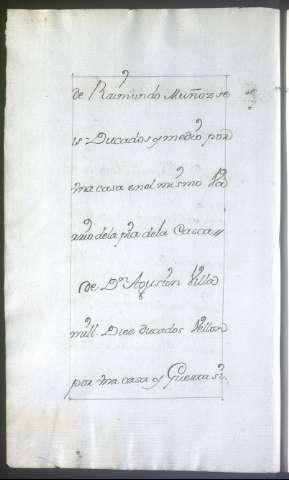 de Raimundo Muñoz se
is Ducados y medio por
vna casa en el mismo Va
rrio de la pta de la Caxca
de Dn Agustin Villa
mill Diez ducados Vellon
por vna casa y Guerta si